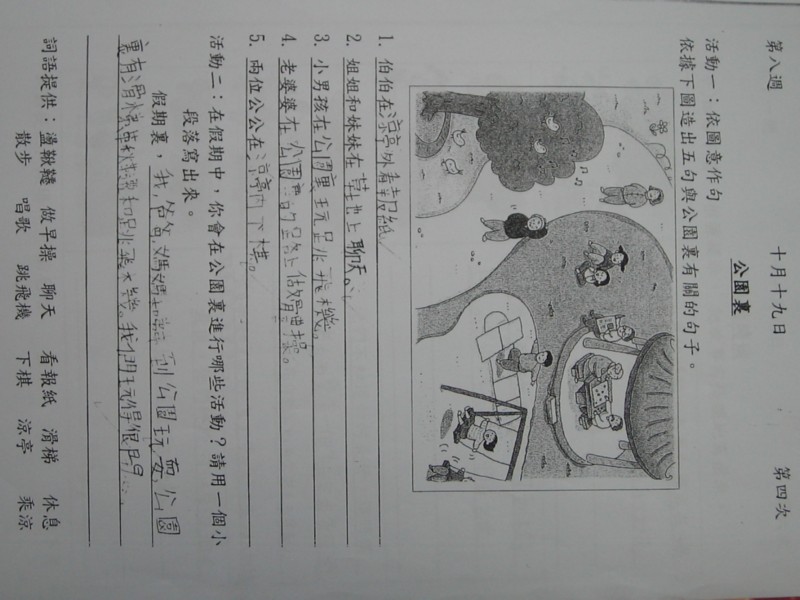 第八週 十月十九日 第四次
公園裏
活動一：依圖意作句
依據下圖造出五句與公園裏有關的句子。
1. 伯伯在涼亭外看報紙
2. 姐姐和妹妹在草地上聊天。
3. 小男孩在公園裏玩跳飛機。
4. 老婆婆在公園上做早操。
5. 兩位公公在涼亭內下棋。
活動二：在假期中，你會在公園裏進行哪些活動？請用一個小
段落寫出來。
假期裏，我、爸爸、媽媽到公園玩耍公園
裏有滑梯和跳飛機。我們玩得很
詞語提供：盪鞦韆 做早操 聊天 看報紙 滑梯 休息
散步 唱歌 跳飛機 下棋 涼亭 乘涼